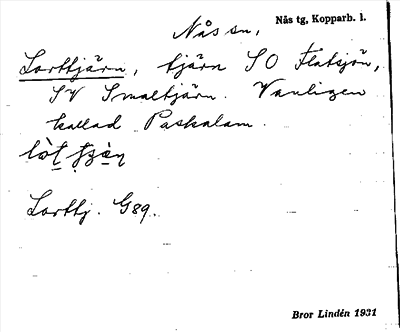 Nås sn, Nås tg, Kopparb. l.
Lorttjärn, tjärn SO Flatsjön,
SV Smaltjärn. Vanligen
kallad Paskalam.
Lorttj. G89.
Bror Lindén 1931